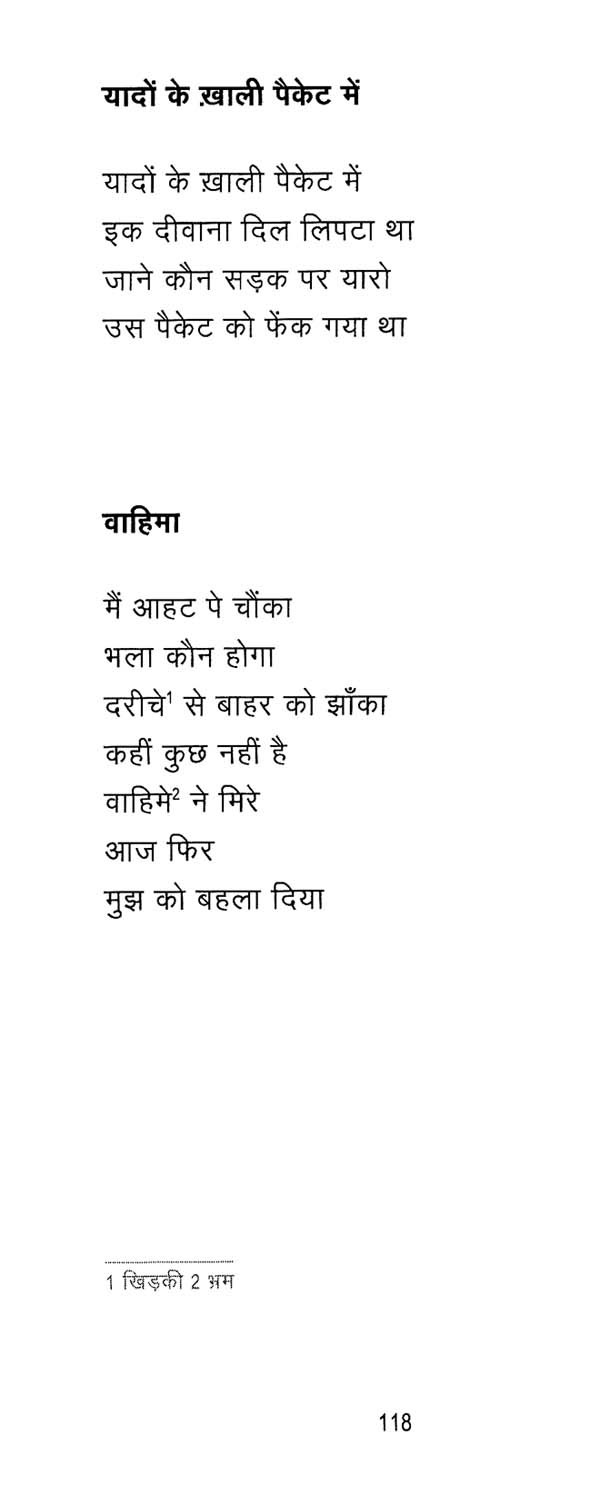 यादों के ख़ाली पैकेट में
यादों के ख़ाली पैकेट में
इक दीवाना दिल लिपटा था
जाने कौन सड़क पर यारो
उस पैकेट को फेंक गया था
वाहिमा
मैं आहट पे चौंका
भला कौन होगा
दरीचे¹ से बाहर को झाँका
कहीं कुछ नहीं है
वाहिमे² ने मिरे
आज फिर
मुझ को बहला दिया
1 खिड़की 2 भ्रम
118